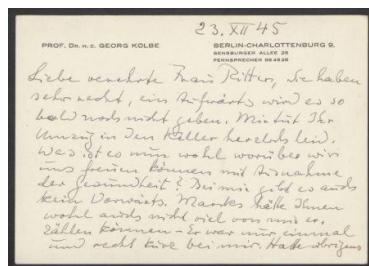 23. XII 45
PROF. DR. H. C. GEORG KOLBE
BERLIN-CHARLOTTENBURG 9.
SENSBURGER ALLEE 25
FERNSPRECHER
Liebe verehrte Frau Ritter, Sie haben
sehr recht, ein Aufwärts wird es so
bald noch nicht geben. Mir tut Ihr
Umzug in den Keller herzlich leid.
Was ist es nun wohl worüber wir
uns freuen können mit Ausnahme
der Gesundheit? Bei mir gibt es auch
kein Vorwärts. hätte Ihnen
wohl auch nicht viel von mir er-
zählen können – Er war nur einmal
und recht kurz bei mir. Hatte übrigens